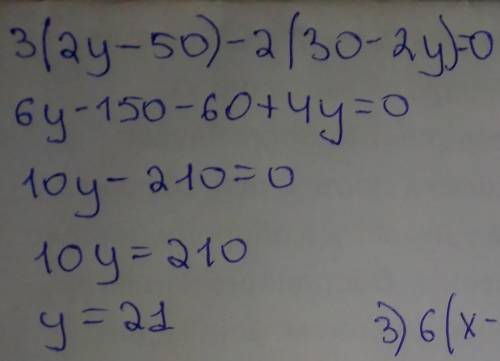 3(2y-50)-2(30-2y)=0
6y-150-60+4y=0
10y-210=0
10y=210
y=21
3) 6(x-